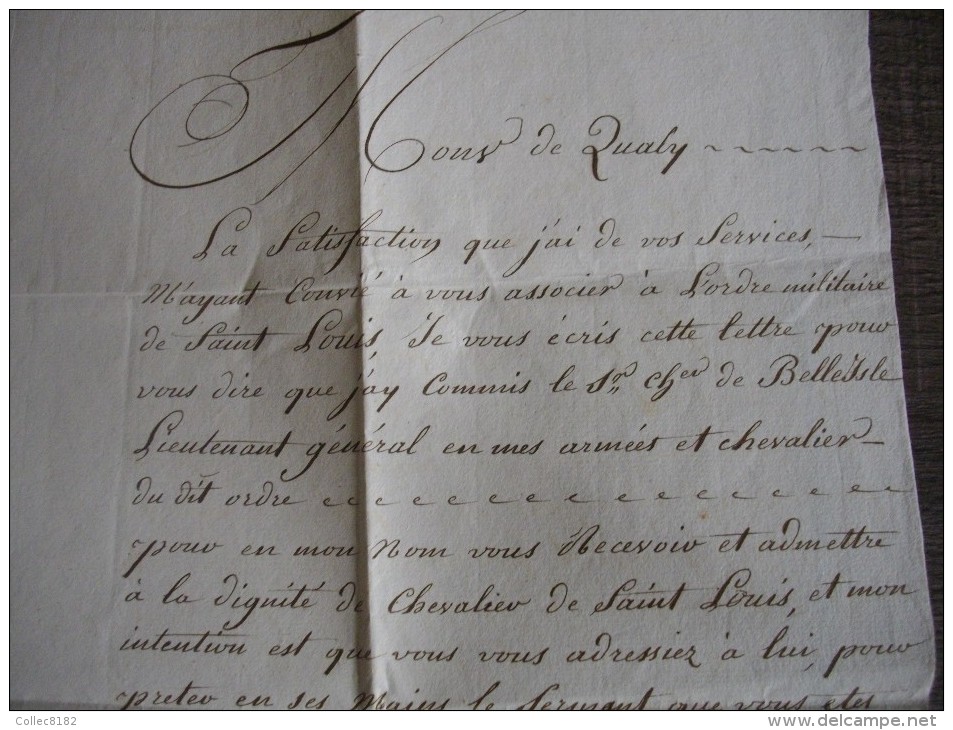 Monsr de Qualy
La Satisfaction que j'ai de vos Services,
M'ayant Convié à vous associer à L'ordre militaire
de Saint Louis, Je vous écris cette lettre pour
vous dire que j'ay Commis le Sr. cher de BelleIsle
Lieutenant général en mes armées et chevalier
du dit ordre
pour en mon Nom vous Recevoir et admettre
à la dignité de Chevalier de Saint Louis, et mon
intention est que vous vous adressiez à lui, pour
preter en ses Mains le Serment que vous etes
Collec8182
delcampe.net